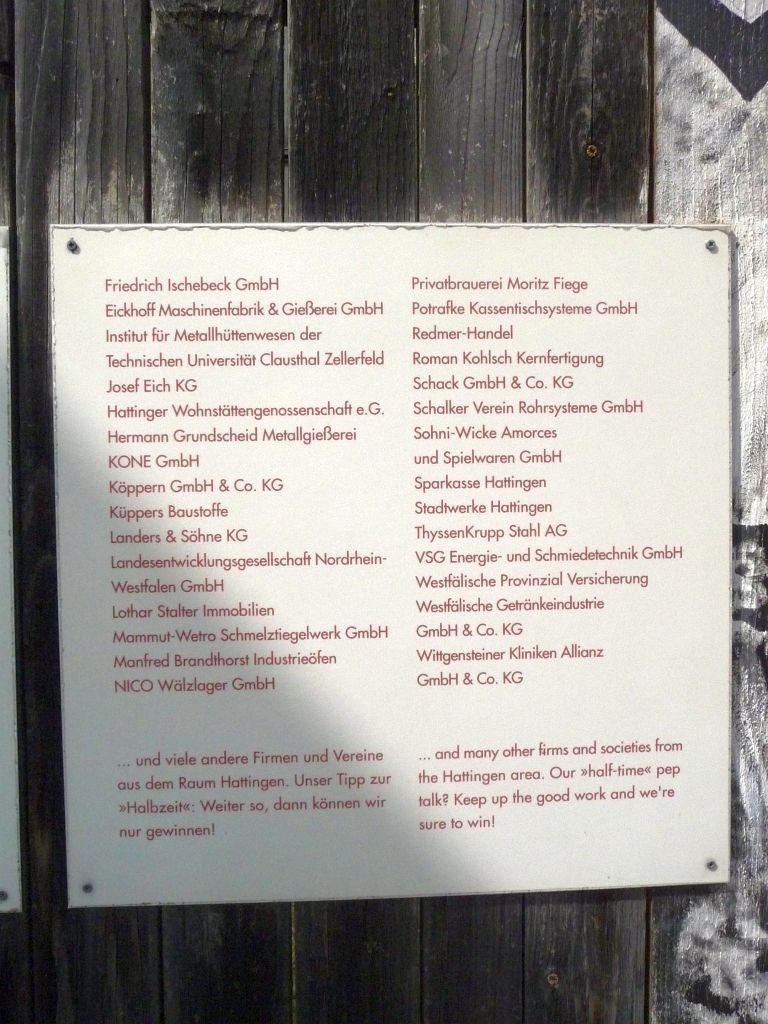 Friedrich Ischebeck GmbH
Eickhoff Maschinenfabrik & Gießerei GmbH
Institut für Metallhüttenwesen der
Technischen Universität Clausthal Zellerfeld
Josef Eich KG
Hattinger Wohnstättengenossenschaft e.G.
Hermann Grundscheid Metallgießerei
KONE GmbH
Köppern GmbH & Co. KG
Küppers Baustoffe
Landers & Söhne KG
Landesentwicklungsgesellschaft Nordrhein-
Westfalen GmbH
Lothar Stalter Immobilien
Mammut-Wetro Schmelztiegelwerk GmbH
Manfred Brandthorst Industrieöfen
NICO Wälzlager GmbH
... und viele andere Firmen und Vereine
aus dem Raum Hattingen. Unser Tipp zur
»Halbzeit«: Weiter so, dann können wir
nur gewinnen!
Privatbrauerei Moritz Fiege
Potrafke Kassentischsysteme GmbH
Redmer-Handel
Roman Kohlsch Kernfertigung
Schack GmbH & Co. KG
Schalker Verein Rohrsysteme GmbH
Sohni-Wicke Amorces
und Spielwaren GmbH
Sparkasse Hattingen
Stadtwerke Hattingen
ThyssenKrupp Stahl AG
VSG Energie- und Schmiedetechnik GmbH
Westfälische Provinzial Versicherung
Westfälische Getränkeindustrie
GmbH & Co. KG
Wittgensteiner Kliniken Allianz
GmbH & Co. KG
... and many other firms and societies from
the Hattingen area. Our »half-time« pep
talk? Keep up the good work and we're
sure to win!